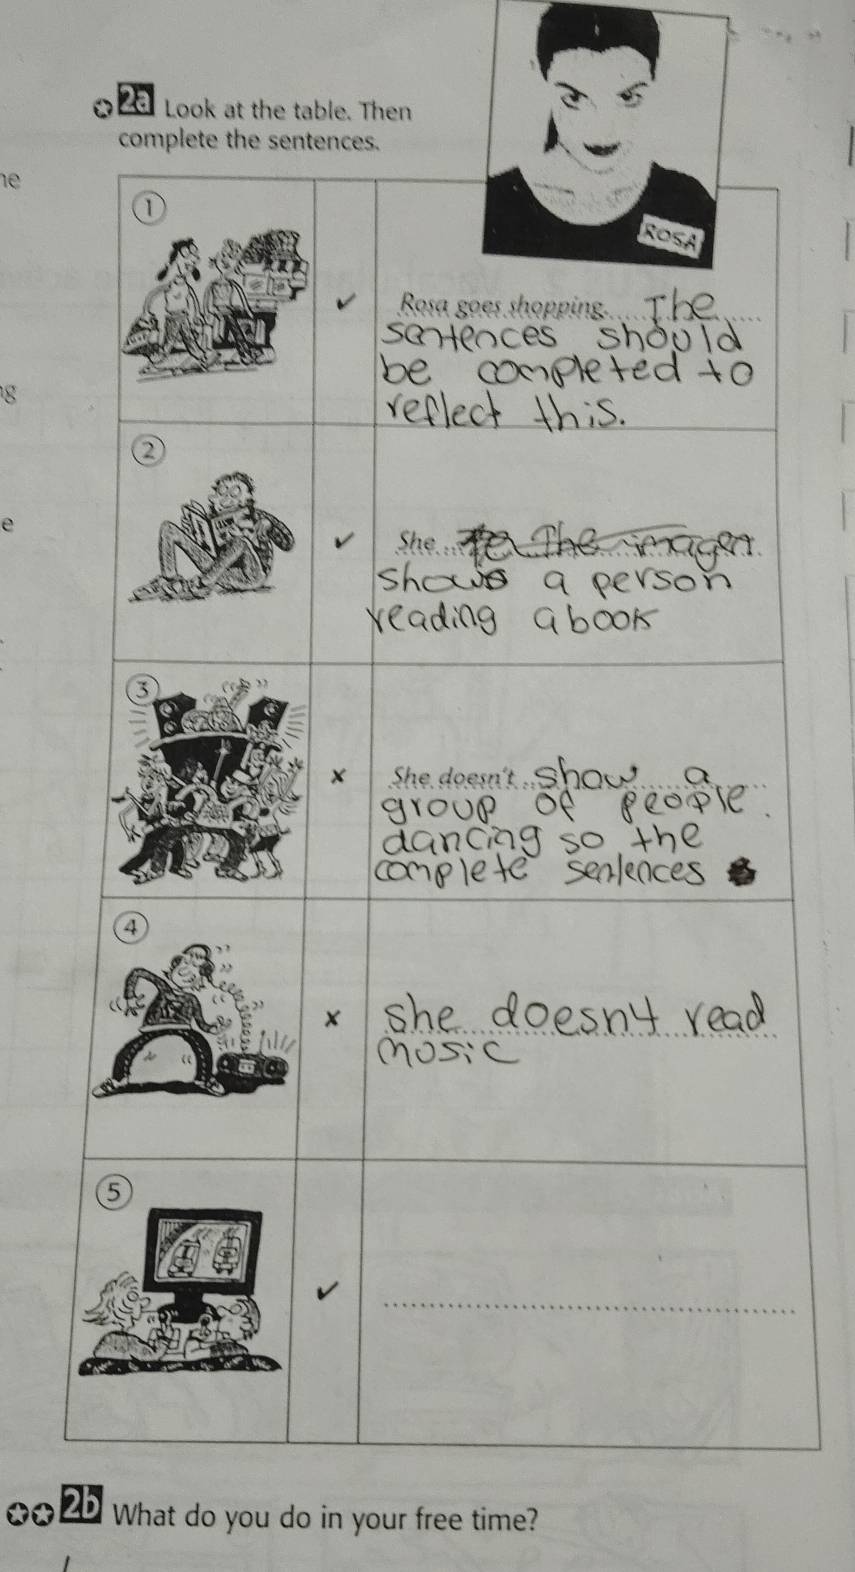 2a Look at the table. Then
complete the sentences.
ROSA
1
✔ Rosa goes shopping. The
sentences should
be completed to
reflect this.
2
✔ She
shows a person
reading a book
3
x She doesn't show a
group of people.
dancing so the
complete sentences
4
x she doesn't read
mosic
5
✔
2b What do you do in your free time?